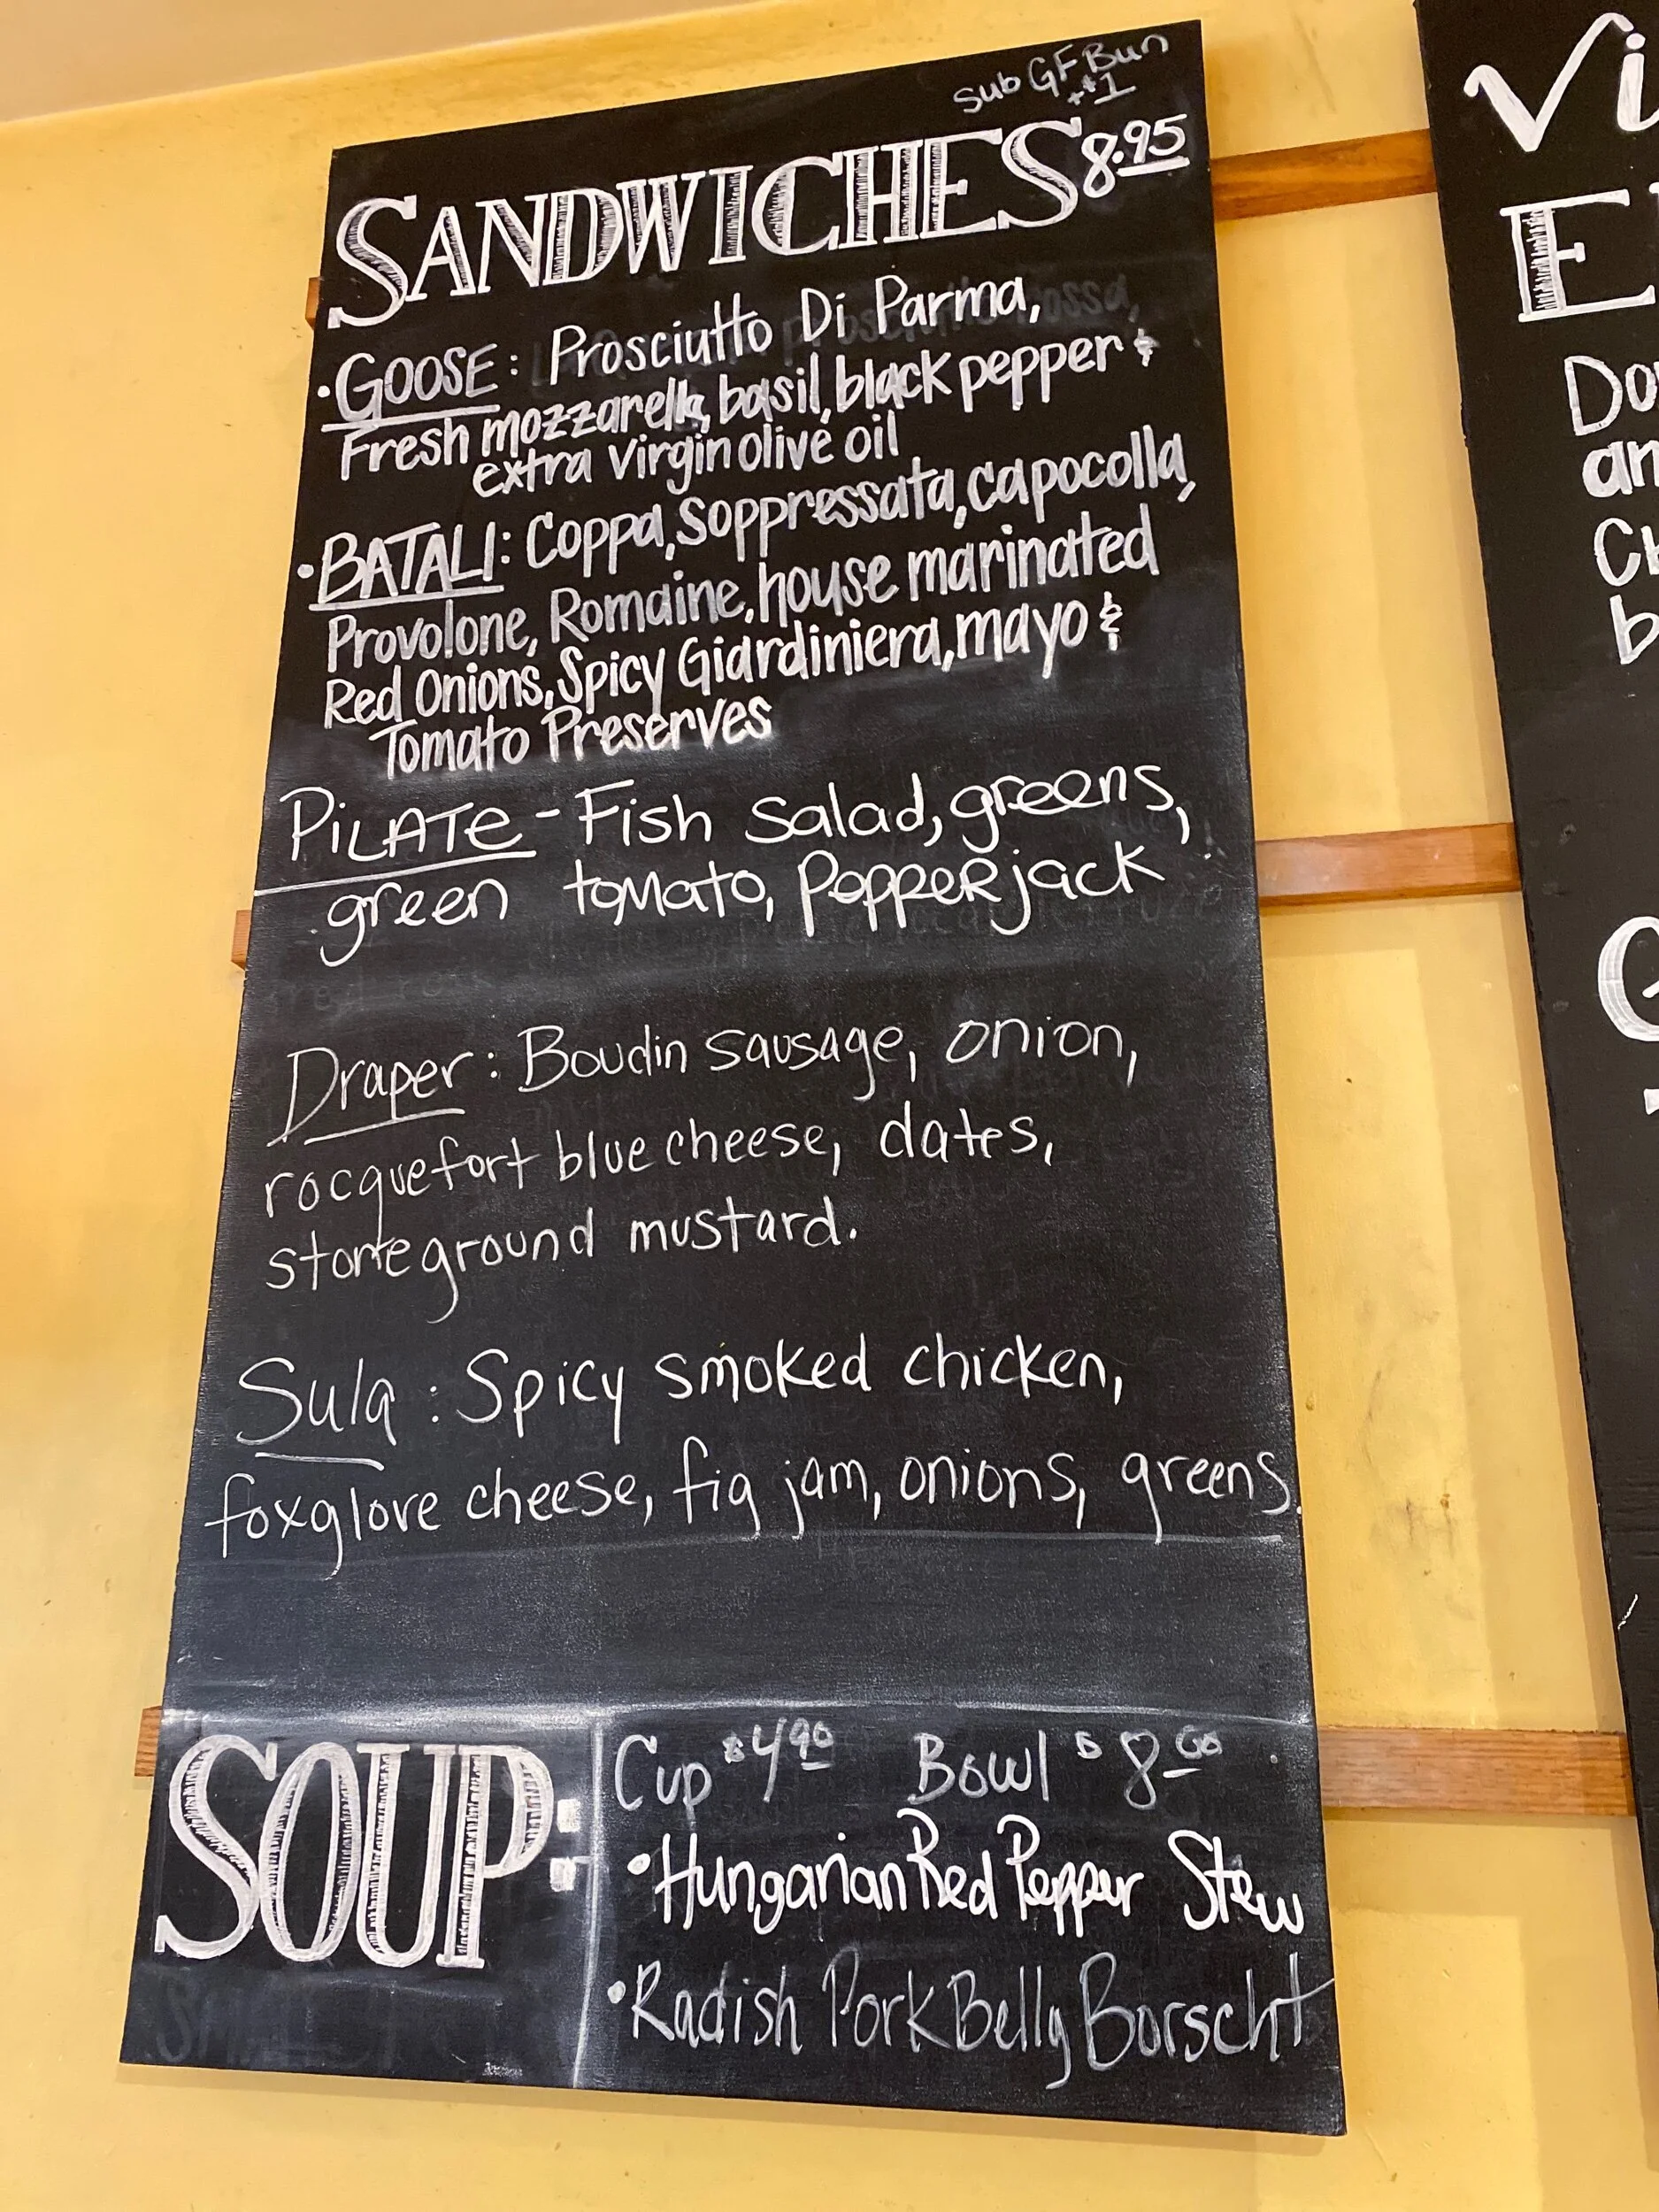 Sub GF Bun
+$1
SANDWICHES 8.95
• GOOSE: Prosciutto Di Parma,
Fresh mozzarella, basil, black pepper &
extra virgin olive oil
• BATALI: Coppa, Soppressata, capocolla,
Provolone, Romaine, house marinated
Red Onions, Spicy Giardiniera, mayo &
Tomato Preserves
PILATE - Fish Salad, greens,
green tomato, Pepperjack
Draper: Boudin sausage, onion,
rocquefort blue cheese, dates,
stoneground mustard.
Sula: Spicy smoked chicken,
foxglove cheese, fig jam, onions, greens.
SOUP:
Cup $4.90 Bowl $8
• Hungarian Red Pepper Stew
• Radish Pork Belly Borscht
Vi
E
Do
an
Ch
b